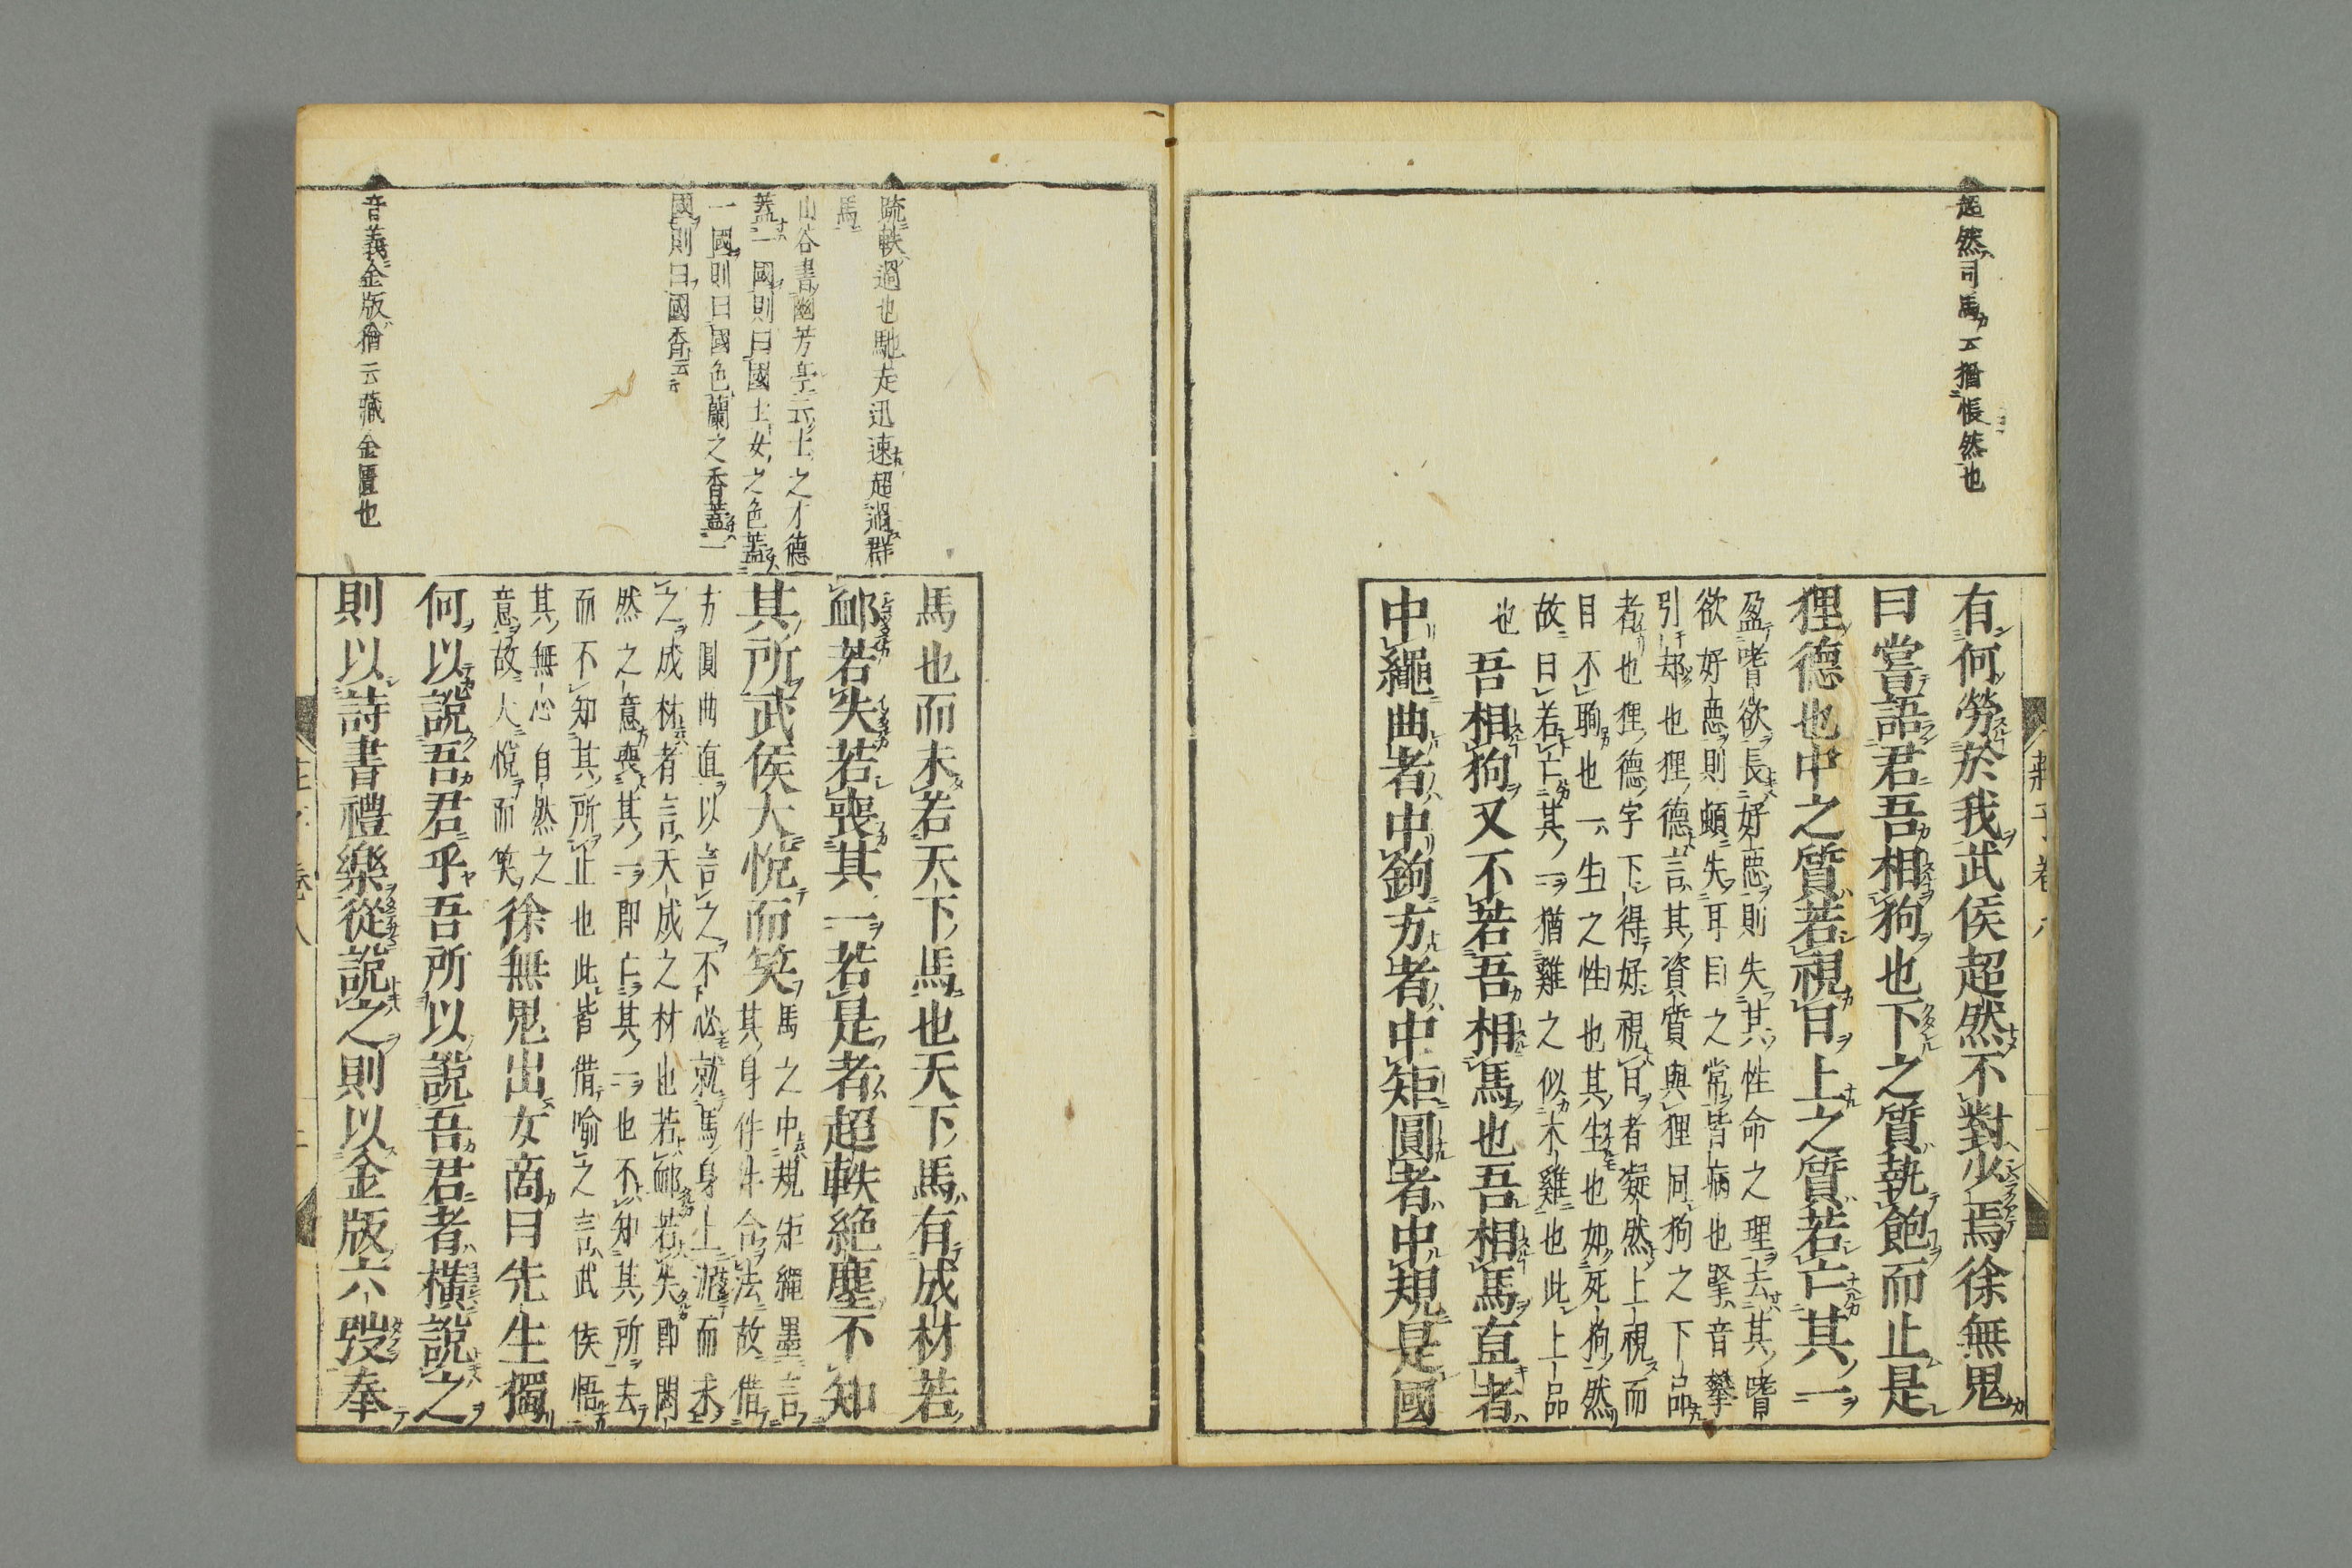 超然司馬云猶悵然也
有何勞於我武侯超然不對少焉徐無鬼
曰嘗語君吾相狗也下之質執飽而止是
狸德也中之質若視日上之質若亡其一
盈嗜欲長好惡則失其性命之理去其嗜
欲好惡則頗失耳目之常皆病也掔音攀
引却也狸德言其資質與狸同狗之下品
者也狸德字下得好視日者凝然上視而
目不眴也一生之性也其生也如死狗然
故曰若亡其一猶雞之似木雞也此上品
也
吾相狗又不若吾相馬也吾相馬直者
中繩曲者中鉤方者中矩圓者中規是國
莊子卷八
疏軼過也馳走迅速超過群
馬
山谷書幽芳亭云士之才德
蓋一國則曰國士女之色蓋
一國則曰國色蘭之香蓋一
國則曰國香云云
音義金版猶云藏金匱也
馬也而未若天下馬也天下馬有成材若
䘏若失若喪其一若是者超軼絕塵不知
其所武侯大悅而笑
馬之中規矩繩墨言
其身件件合法故借
方圓曲直以言之不必就馬身上泥而求
之成材者言天成之材也若䘏若失即閔
然之意喪其一即亡其一也不知其所去
而不知其所止也此皆借喻之言武侯悟
其無心自然之
意故大悅而笑
徐無鬼出女商曰先生獨
何以說吾君乎吾所以說吾君者橫說之
則以詩書禮樂從說之則以金版六弢奉